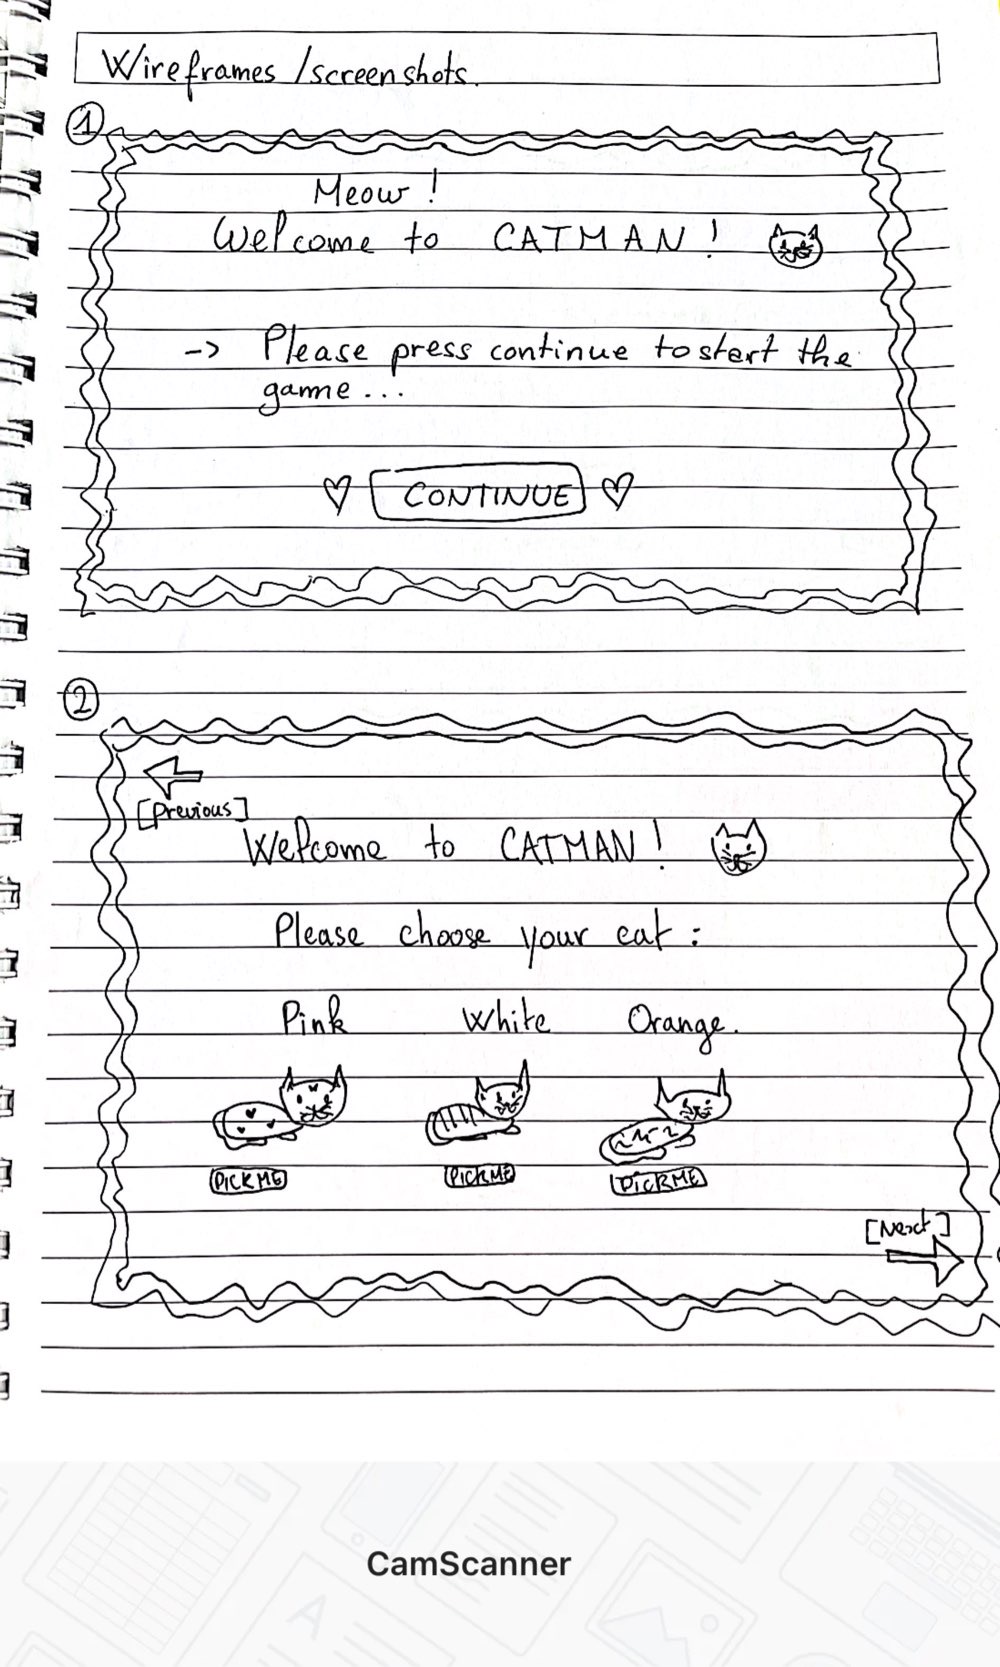 Wireframes /screenshots.
1
Meow !
Welcome to CATMAN !
-> Please press continue to start the
game ...
CONTINUE
2
[Previous]
Welcome to CATMAN !
Please choose your cat :
Pink White Orange.
PICK ME PICK ME PICK ME
[Next]
CamScanner